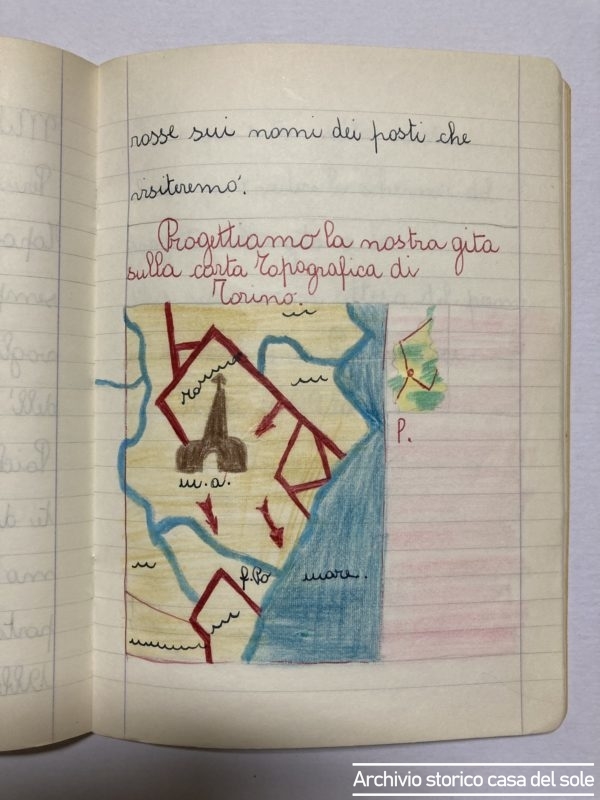 rosse sui nomi dei posti che
visiteremo'.
Progettiamo la nostra gita
sulla carta Topografica di
Torino.
m.a.
P.
f. Po
mare.
Archivio storico casa del sole